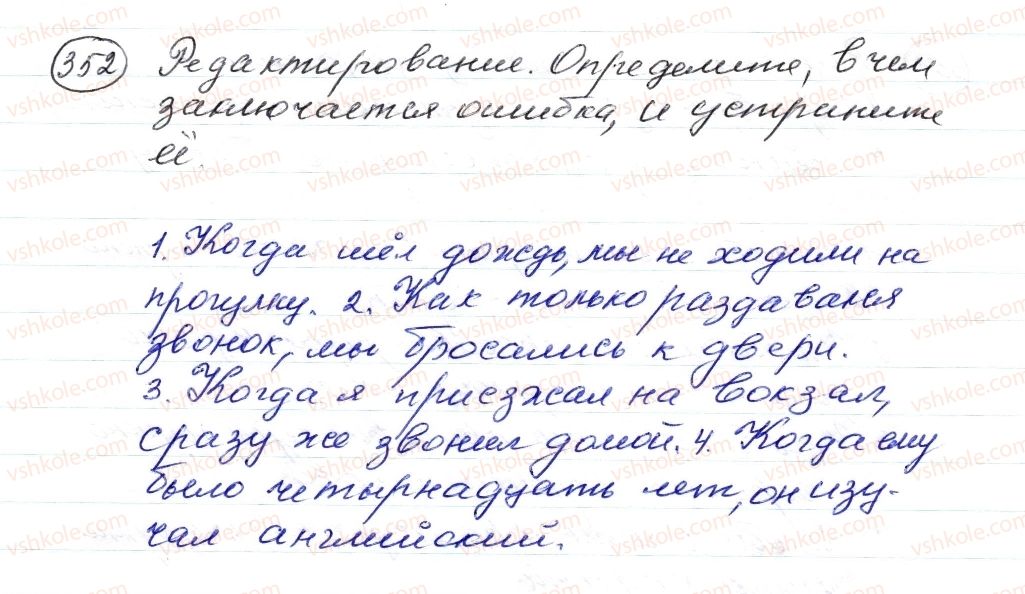 352 Редактирование. Определите, в чем
заключается ошибка, и устраните
её.
1. Когда шёл дождь, мы не ходили на
прогулку. 2. Как только раздавался
звонок, мы бросались к двери.
3. Когда я приезжал на вокзал,
сразу же звонил домой. 4. Когда ему
было четырнадцать лет, он изу-
чал английский.